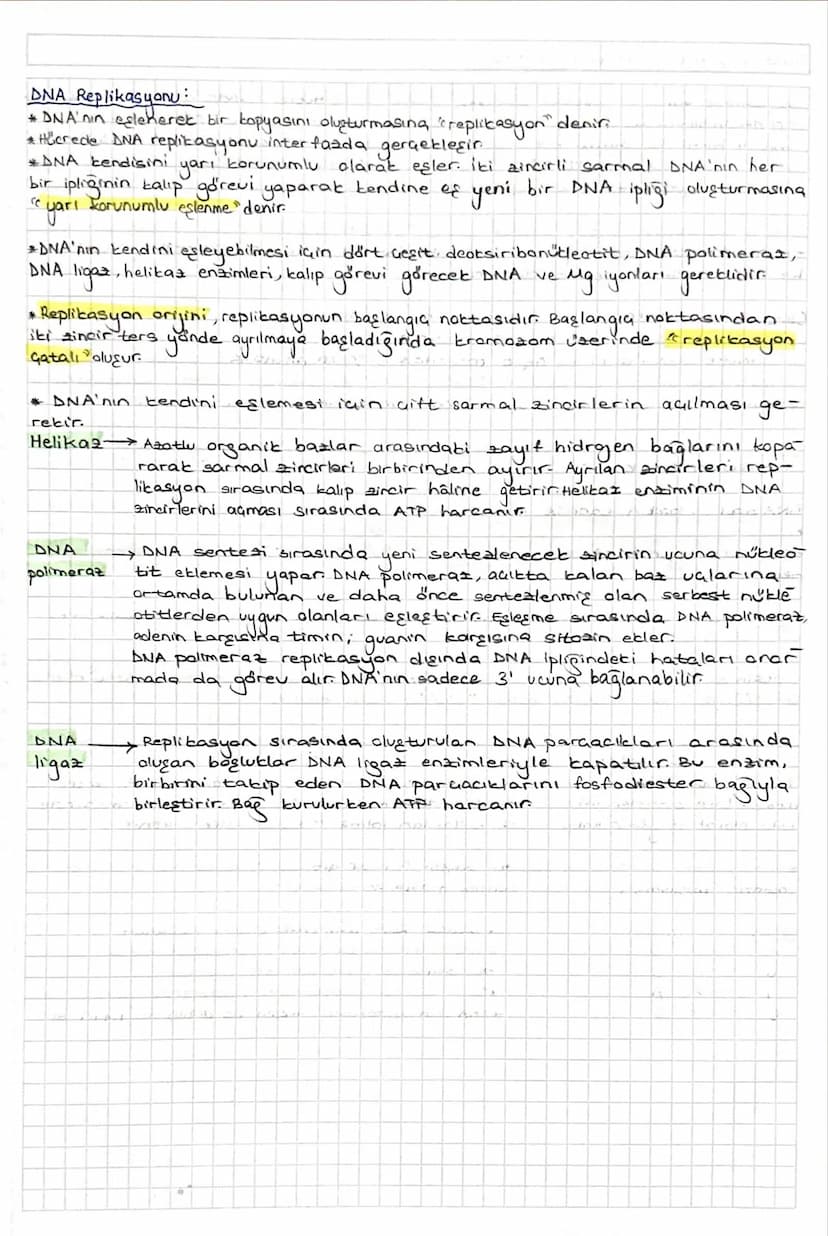 DNA Replikasyonu:
* DNA'nın eşlenerek bir kopyasını oluşturmasına "replikasyon" denir.
* Hücrede DNA replikasyonu interfazda gerçekleşir.
* DNA kendisini yarı korunumlu olarak eşler. İki zincirli sarmal DNA'nın her
bir ipliğinin kalıp görevi yaparak kendine eş yeni bir DNA ipliği oluşturmasına
"yarı korunumlu eşlenme" denir.
* DNA'nın kendini eşleyebilmesi için dört çeşit deoksiribonükleotit, DNA polimeraz,
DNA ligaz, helikaz enzimleri, kalıp görevi görecek DNA ve Mg iyonları gereklidir.
* Replikasyon orijini, replikasyonun başlangıç noktasıdır. Başlangıç noktasından
iki zincir ters yönde ayrılmaya başladığında kromozom üzerinde "replikasyon
çatalı" oluşur.
* DNA'nın kendini eşlemesi için çift sarmal zincirlerin açılması ge-
rekir.
Helikaz → Azotlu organik bazlar arasındaki zayıf hidrojen bağlarını kopa-
rarak sarmal zincirleri birbirinden ayırır. Ayrılan zincirleri rep-
likasyon sırasında kalıp zincir hâline getirir. Helikaz enziminin DNA
zincirlerini açması sırasında ATP harcanır.
DNA → DNA sentezi sırasında yeni sentezlenecek zincirin ucuna nükleo-
polimeraz tit eklemesi yapar. DNA polimeraz, açıkta kalan baz uçlarına
ortamda bulunan ve daha önce sentezlenmiş olan serbest nükle-
otitlerden uygun olanları eşleştirir. Eşleşme sırasında DNA polimeraz,
adenin karşısına timin; guanin karşısına sitozin ekler.
DNA polimeraz replikasyon dışında DNA ipliğindeki hataları onar-
mada da görev alır. DNA'nın sadece 3' ucuna bağlanabilir.
DNA → Replikasyon sırasında oluşturulan DNA parçacıkları arasında
ligaz oluşan boşluklar DNA ligaz enzimleriyle kapatılır. Bu enzim,
birbirini takip eden DNA parçacıklarını fosfodiester bağıyla
birleştirir. Bağ kurulurken ATP harcanır.